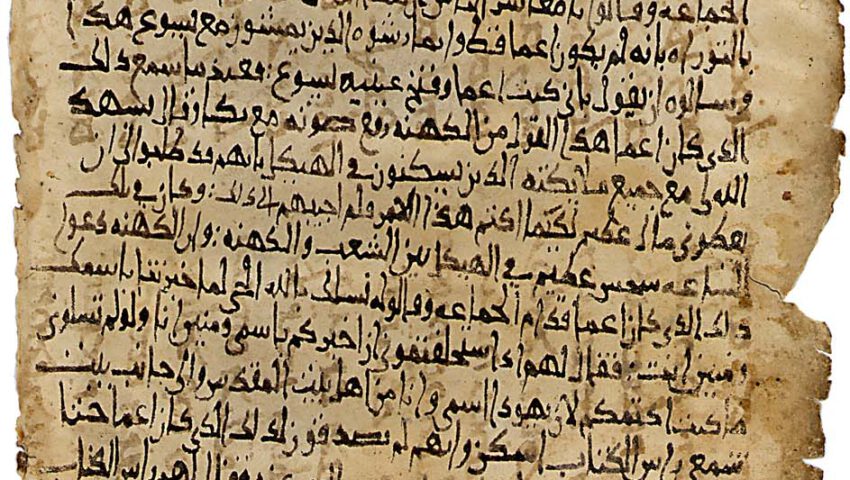 الجماعه وقالوا يا معاشر الناس
بالتوراه بانه لم يكون اعما قط وانما رشوه الذين يمشون مع يسوع هكذا
وسالوه ان يقول باني كنت اعما وفتح عينيه يسوع : فعند ما سمع ذلك
الذي كان اعما هذا القول من الكهنه رفع صوته مع بكا وقال يشهد
الله لي مع جميع ملايكته الذين يسكنون في الهيكل بانهم قد طلبوا الي ان
يعطوني مال عظيم لكيما اكتم هذا الامر ولم اجيبهم الى ذلك : وكان في تلك
الساعه سجس عظيم في الهيكل بين الشعب والكهنه : وان الكهنه دعوا
ذلك الذي كان اعما قدام الجماعه وقالوا له نسلك بالله الحي لما خبرتنا باسمك
ومنين انت : فقال لهم اذا ستحلفتموني ان اخبركم باسمي ومنين انا ولو لم تسلوني
ما كنت اكتمكم لان يهودا اسمي وانا من اهل بيت المقدس والى جانب بيت
شمع راس الكتاب اسكن وانهم لم يصدقون لذلك الذي كان اعما حتا
فقال لهم راس الكتاب